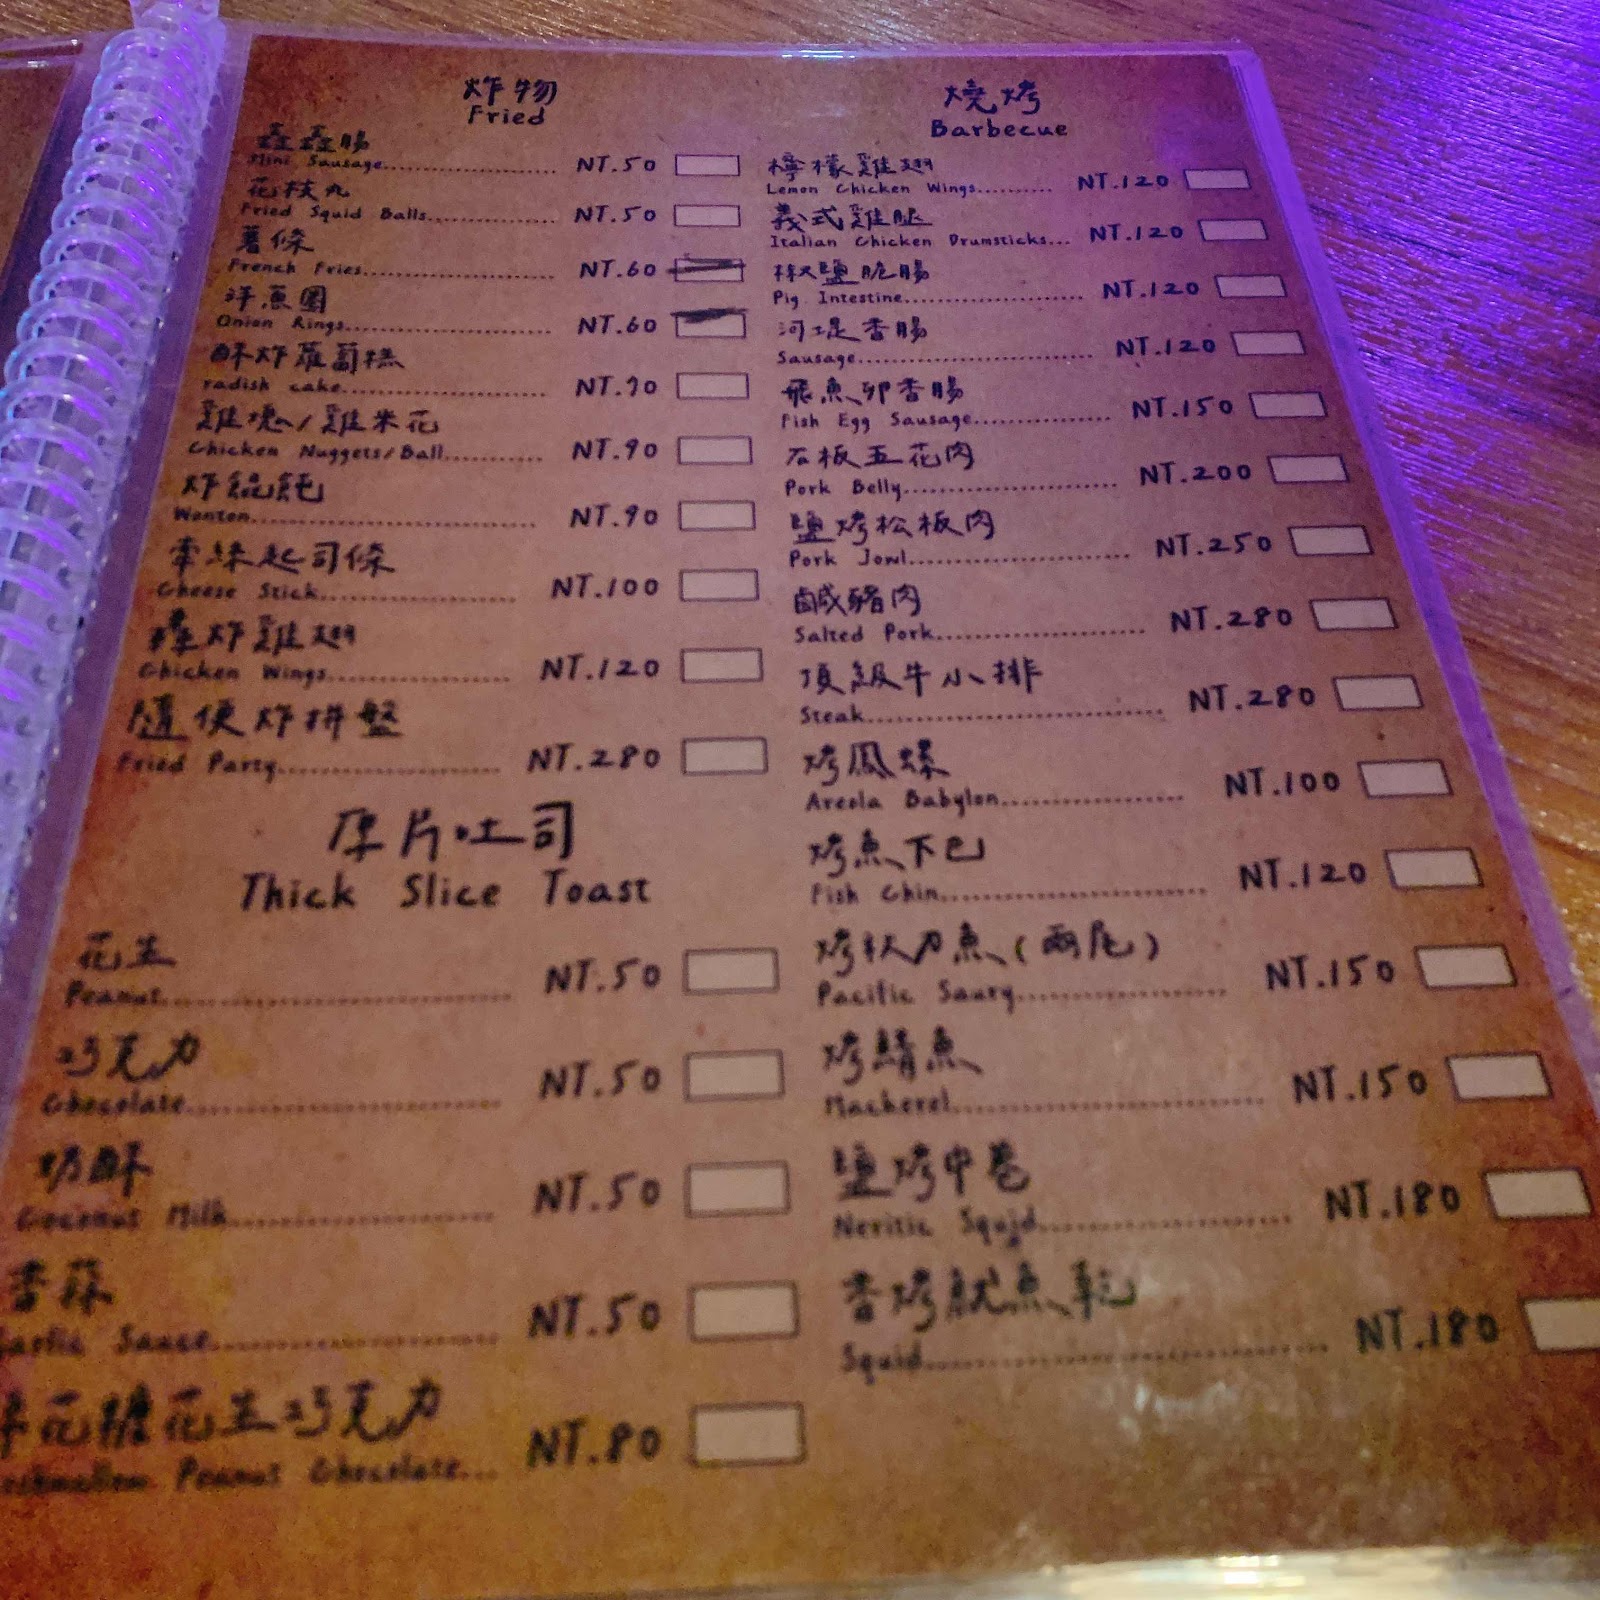 炸物
Fried
鑫鑫腸
Mini Sausage NT.50
花枝丸
Fried Squid Balls NT.50
薯條
French Fries NT.60
洋蔥圈
Onion Rings NT.60
酥炸蘿蔔糕
radish cake NT.70
雞塊/雞米花
Chicken Nuggets/Ball NT.90
炸餛飩
Wonton NT.90
牽絲起司條
Cheese Stick NT.100
炸雞翅
Chicken Wings NT.120
隨便炸拼盤
Fried Party NT.280
厚片吐司
Thick Slice Toast
花生
Peanut NT.50
巧克力
Chocolate NT.50
奶酥
Coconut Milk NT.50
香蒜
Garlic Sauce NT.50
花糖花生巧克力
Peanut Chocolate... NT.80
燒烤
Barbecue
檸檬雞翅
Lemon Chicken Wings NT.120
義式雞腿
Italian Chicken Drumsticks... NT.120
椒鹽脆腸
Pig Intestine NT.120
河堤香腸
Sausage NT.120
飛魚卵香腸
Fish Egg Sausage NT.150
石板五花肉
Pork Belly NT.200
鹽烤松板肉
Pork Jowl NT.250
鹹豬肉
Salted Pork NT.280
頂級牛小排
Steak NT.280
烤鳳螺
Areola Babylon NT.100
烤魚下巴
Fish Chin NT.120
烤秋刀魚(兩尾)
Pacific Saury NT.150
烤鯖魚
Mackerel NT.150
鹽烤中卷
Neritic Squid NT.180
香烤魷魚乾
Squid NT.180